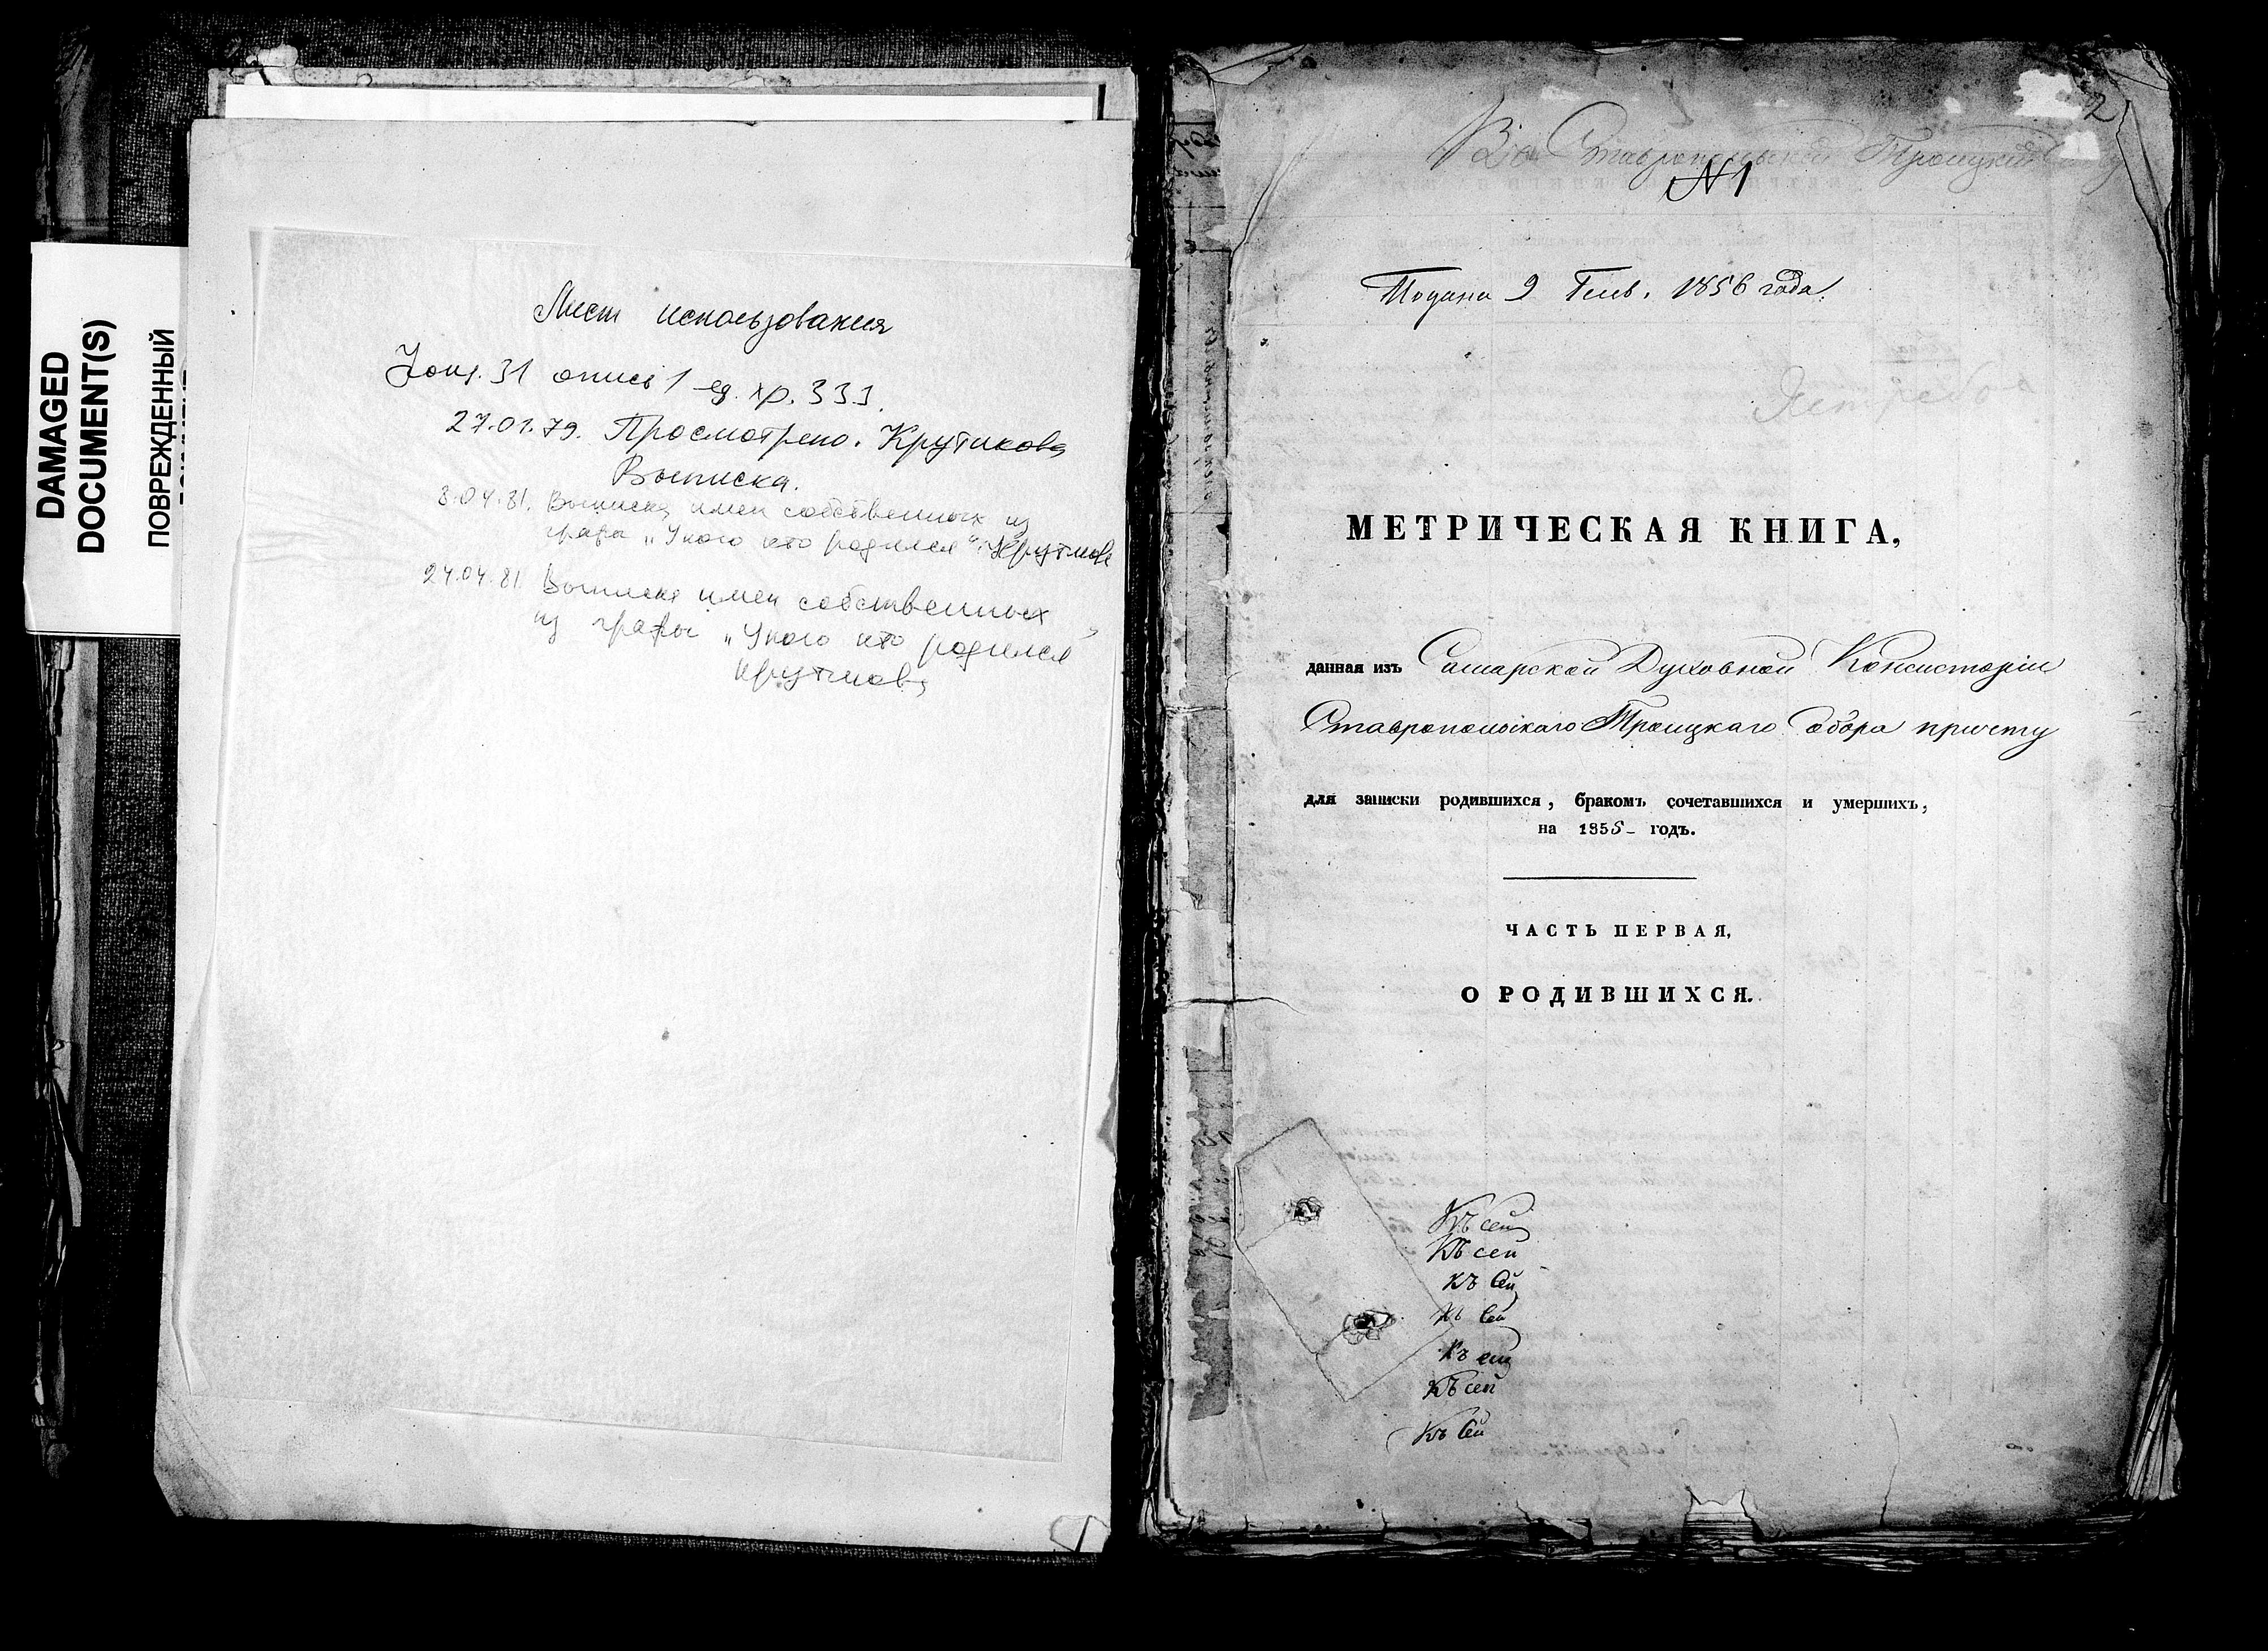 DAMAGED
DOCUMENT(S)
ПОВРЕЖДЕННЫЙ
Лист использования
Фонд. 31 опись 1 ед. хр. 333.
27.01.79. Просмотрено. Крутикова
Выписка.
8.04.81. Выписка имен собственных из
графы „У кого кто родился“. Крутикова
24.04.81. Выписка имен собственных
из графы „У кого кто родился“
Крутикова
2
Въ Ставропольскій Троицкій
N 1
Подана 9 Генв. 1856 года.
МЕТРИЧЕСКАЯ КНИГА,
данная изъ Самарской Духовной Консисторіи
Ставропольскаго Троицкаго собора причту
для записки родившихся, бракомъ сочетавшихся и умершихъ,
на 1855 годъ.
ЧАСТЬ ПЕРВАЯ,
О РОДИВШИХСЯ.
Къ сей
Къ сей
Къ сей
Къ сей
Къ сей
Къ сей
Къ сей